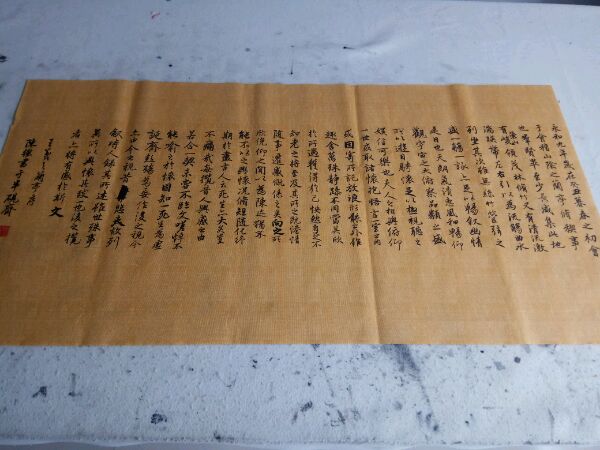 永和九年歲在癸丑暮春之初會
于會稽山陰之蘭亭脩稧事
也羣賢畢至少長咸集此地
有崇山峻領茂林脩竹又有清流激
湍暎帶左右引以為流觴曲水
列坐其次雖無絲竹管弦之
盛一觴一詠亦足以暢敘幽情
是日也天朗氣清惠風和暢仰
觀宇宙之大俯察品類之盛
所以遊目騁懷足以極視聽之
娛信可樂也夫人之相與俯仰
一世或取諸懷抱悟言一室之內
或因寄所託放浪形骸之外雖
趣舍萬殊靜躁不同當其欣
於所遇暫得於己快然自足不
知老之將至及其所之既惓情
隨事遷感慨係之矣向之所
欣俛仰之間以為陳迹猶不
能不以之興懷況脩短隨化終
期於盡古人云死生亦大矣豈
不痛哉每攬昔人興感之由
若合一契未嘗不臨文嗟悼不
能喻之於懷固知一死生為虛
誕齊彭殤為妄作後之視今
亦由今之視昔悲夫故列
敘時人錄其所述雖世殊事
異所以興懷其致一也後之攬
者亦將有感於斯文
王羲之蘭亭序
陳 書於 硯齋